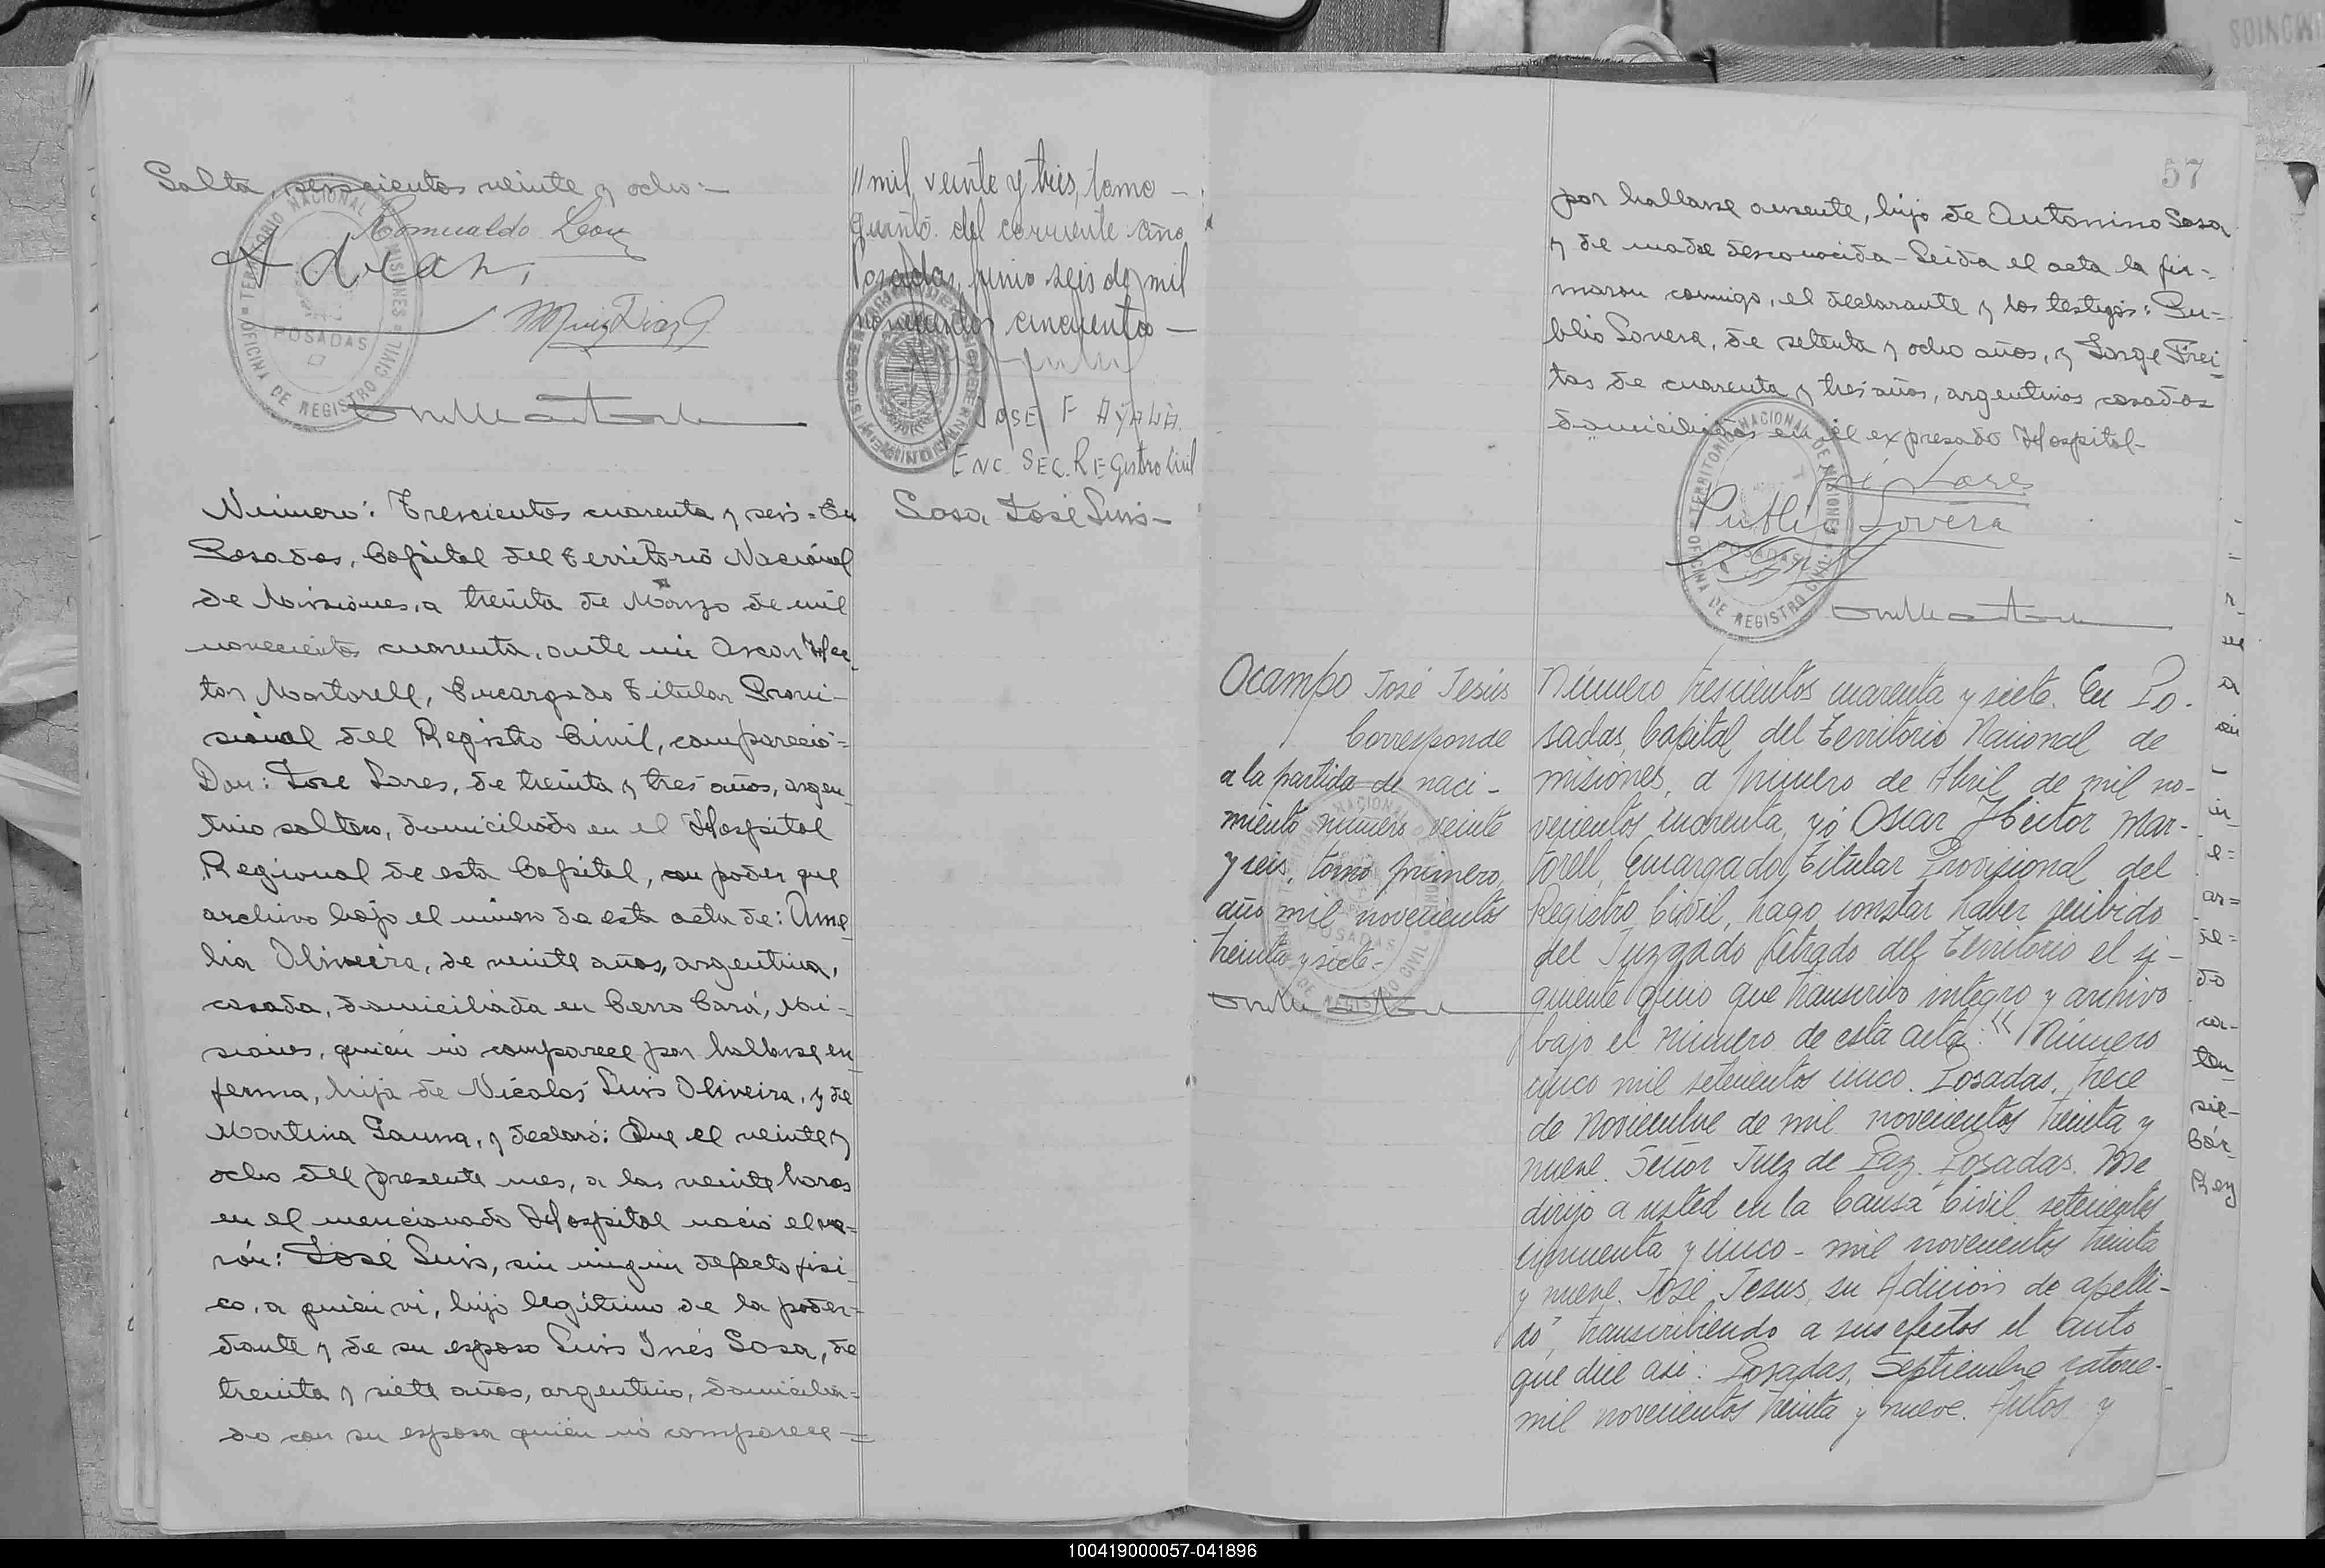 Salta, seiscientos veinte y ocho:—
Romualdo León
// mil veinte y tres, tomo —
quinto del corriente año
Posadas, junio seis de mil
novecientos cincuenta —
JOSE F AYALA.
ENC. SEC. REGistro Civil
TERRITORIO NACIONAL DE MISIONES
POSADAS
OFICINA DE REGISTRO CIVIL
Sosa José Luis—
Número: Trescientos cuarenta y seis = En
Posadas, Capital del Territorio Nacional
de Misiones, a treinta de Marzo de mil
novecientos cuarenta, ante mi Oscar Hec-
tor Martorell, Encargado Titular Provi-
sional del Registro Civil, compareció=
Don: José Lares, de treinta y tres años, argen-
tino soltero, domiciliado en el Hospital
Regional de esta Capital, con poder que
archivo bajo el número de esta acta de: Ame-
lia Oliveira, de veinte años, argentina,
casada, domiciliada en Cerro Corá, Mi-
siones, quién no comparece por hallarse en-
ferma, hija de Nicolás Luis Oliveira, y de
Martina Gauna, y declaró: Que el veinte y
ocho del presente mes, a las veinte horas
en el mencionado Hospital nació el va-
rón: José Luis, sin ningún defecto físi-
co, a quién vi, hijo legítimo de la poder-
dante y de su esposo Luis Inés Sosa, de
treinta y siete años, argentino, domicilia-
do con su esposa quién no comparece=
57
por hallarse ausente, hijo de Antonino Sosa
y de madre desconocida—Leida el acta la fir-
maron conmigo, el declarante y los testigos: Pu-
blio Lovera, de setenta y ocho años, y Jorge Frei-
tas de cuarenta y tres años, argentinos casados
domiciliados en el expresado Hospital—
José Lares
Publio Lovera
TERRITORIO NACIONAL DE MISIONES
POSADAS
OFICINA DE REGISTRO CIVIL
Ocampo José Jesús
Corresponde
a la partida de naci-
miento número veinte
y seis, tomo primero,
año mil novecientos
treinta y siete.-
Número trescientos cuarenta y siete. En Po-
sadas, Capital del Territorio Nacional de
misiones, a primero de Abril de mil no-
vecientos cuarenta, yo Oscar Hector Mar-
torell, Encargado Titular Provisional del
Registro Civil, hago constar haber recibido
del Juzgado Letrado del Territorio el si-
guiente oficio que transcribo integro y archivo
bajo el número de esta acta: "Número
cinco mil setecientos cinco. Posadas, trece
de Noviembre de mil novecientos treinta y
nueve. Señor Juez de Paz. Posadas. Me
dirijo a usted en la Causa Civil setecientos
cincuenta y cinco - mil novecientos treinta
y nueve. José Jesus, su Adición de apelli-
do", transcribiendo a sus efectos el auto
que dice asi: Posadas, Septiembre catorce-
mil novecientos treinta y nueve. Autos y
100419000057-041896